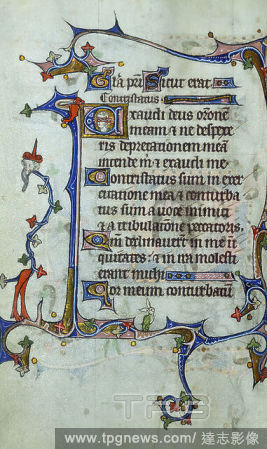 Gl'ia pri Sicut erat.
Contristatus
Exaudi deus oronē
meam & ne despexe
ris deprecationem meā
intende m & exaudi me
Contristatus sum in exer
citatione mea & conturba
tus sum a uoce inimici
& a tribulatione peccatoris.
Qm declinauerūt in me ini
quitates: & in ira molesti
erant michi
Cor meum conturbatū
TPG
www.tpgnews.com / 達志影像